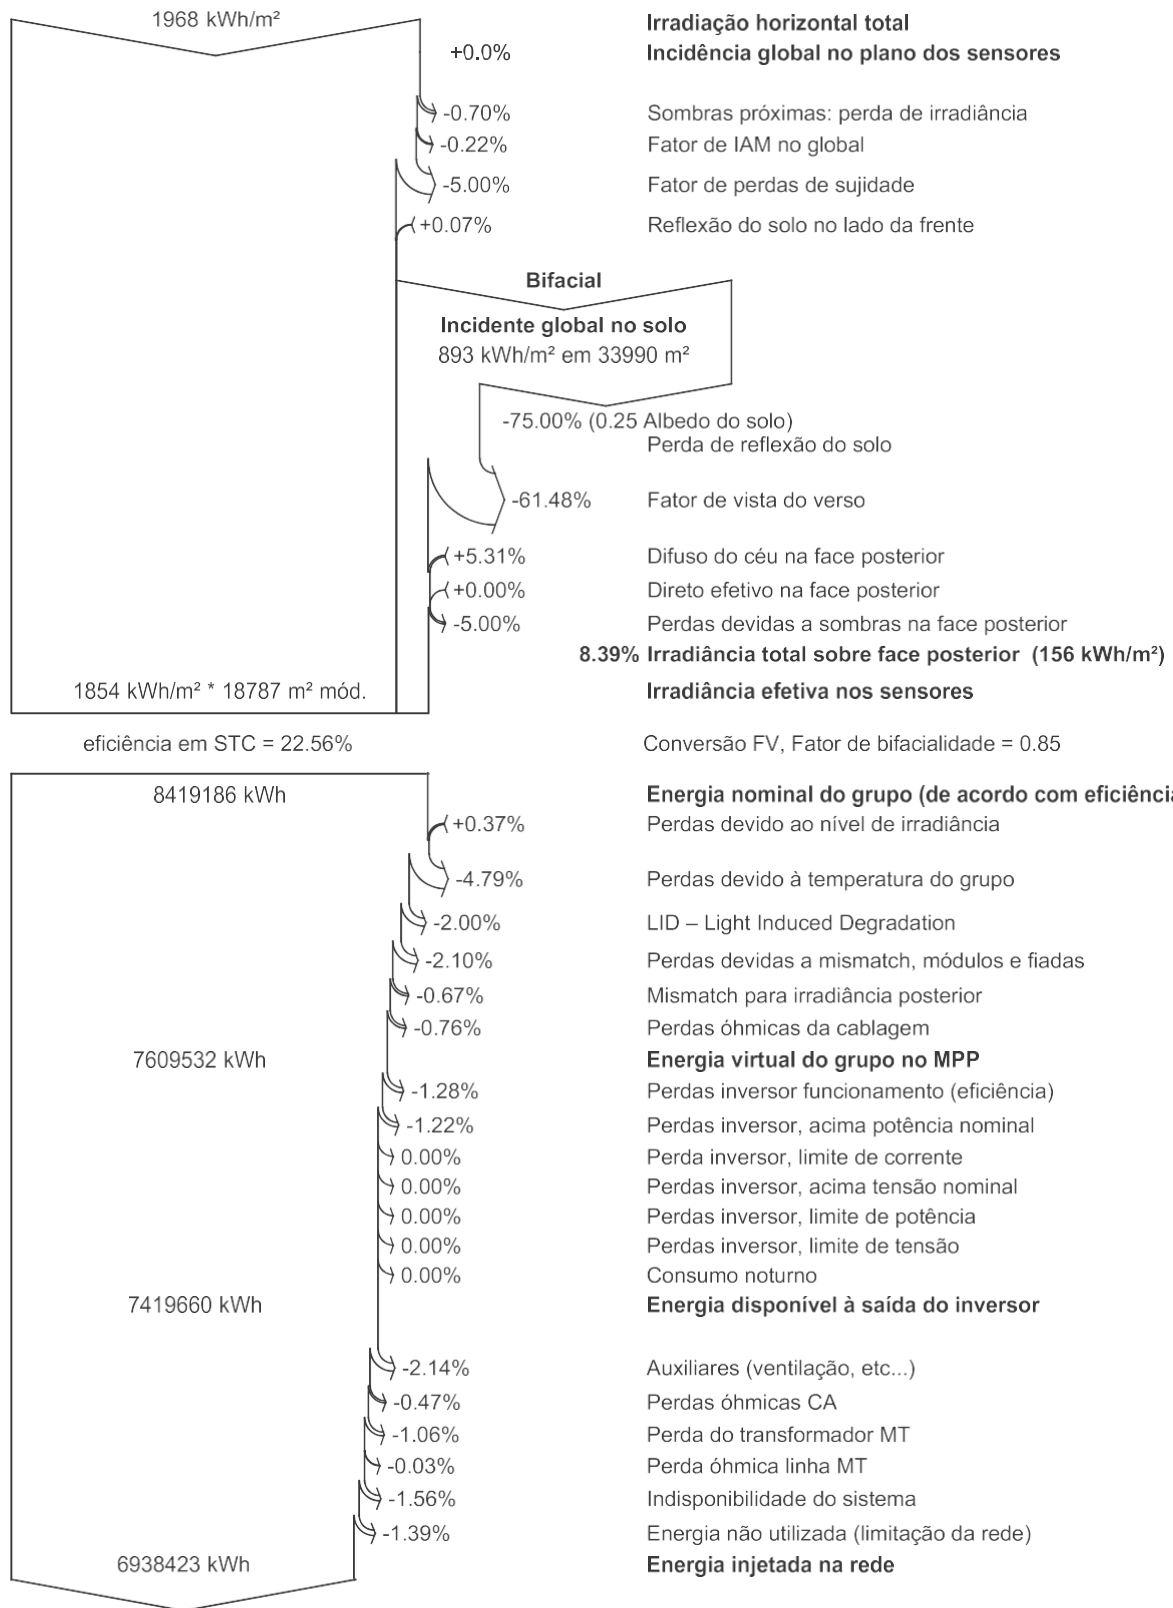 1968 kWh/m² Irradiação horizontal total
+0.0% Incidência global no plano dos sensores
-0.70% Sombras próximas: perda de irradiância
-0.22% Fator de IAM no global
-5.00% Fator de perdas de sujidade
+0.07% Reflexão do solo no lado da frente
Bifacial
Incidente global no solo
893 kWh/m² em 33990 m²
-75.00% (0.25 Albedo do solo)
Perda de reflexão do solo
-61.48% Fator de vista do verso
+5.31% Difuso do céu na face posterior
+0.00% Direto efetivo na face posterior
-5.00% Perdas devidas a sombras na face posterior
8.39% Irradiância total sobre face posterior (156 kWh/m²)
1854 kWh/m² * 18787 m² mód. Irradiância efetiva nos sensores
eficiência em STC = 22.56% Conversão FV, Fator de bifacialidade = 0.85
8419186 kWh Energia nominal do grupo (de acordo com eficiência
+0.37% Perdas devido ao nível de irradiância
-4.79% Perdas devido à temperatura do grupo
-2.00% LID – Light Induced Degradation
-2.10% Perdas devidas a mismatch, módulos e fiadas
-0.67% Mismatch para irradiância posterior
-0.76% Perdas óhmicas da cablagem
7609532 kWh Energia virtual do grupo no MPP
-1.28% Perdas inversor funcionamento (eficiência)
-1.22% Perdas inversor, acima potência nominal
0.00% Perda inversor, limite de corrente
0.00% Perdas inversor, acima tensão nominal
0.00% Perdas inversor, limite de potência
0.00% Perdas inversor, limite de tensão
0.00% Consumo noturno
7419660 kWh Energia disponível à saída do inversor
-2.14% Auxiliares (ventilação, etc...)
-0.47% Perdas óhmicas CA
-1.06% Perda do transformador MT
-0.03% Perda óhmica linha MT
-1.56% Indisponibilidade do sistema
-1.39% Energia não utilizada (limitação da rede)
6938423 kWh Energia injetada na rede